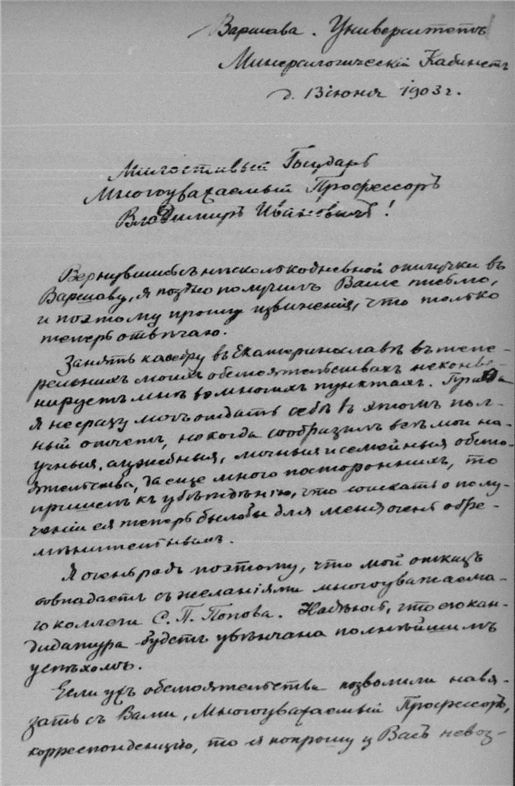 Варшава. Университетъ
Минералогическій Кабинетъ
д. 13 іюня 1903 г.
Милостивый Государь
Многоуважаемый Профессоръ
Владимиръ Ивановичъ!
Вернувшись съ нѣсколькодневной отлучки въ
Варшаву, я поздно получилъ Ваше письмо,
и поэтому прошу извиненія, что только
теперь отвѣчаю.
Занять каѳедру въ Екатеринославѣ въ тепе-
решнихъ моихъ обстоятельствахъ не конве-
нируетъ мнѣ во многихъ пунктахъ. Правда
я не сразу могъ отдать себѣ въ этомъ пол-
ный отчетъ, но когда сообразилъ всѣ мои на-
учныя, служебныя, личныя и семейныя обсто-
ятельства, да еще много постороннихъ, то
пришелъ къ убѣжденію, что искать о полу-
ченіи ея теперь было бы для меня очень обре-
менительнымъ.
Я очень радъ поэтому, что мой отказъ
совпадаетъ съ желаніями многоуважаема-
го коллеги С. П. Попова. Надѣюсь, что его кан-
дидатура будетъ увѣнчана полнѣйшимъ
успѣхомъ.
Если ужъ обстоятельства позволили навя-
зать съ Вами, Многоуважаемый Профессоръ,
корреспонденцію, то я попрошу у Васъ невоз-